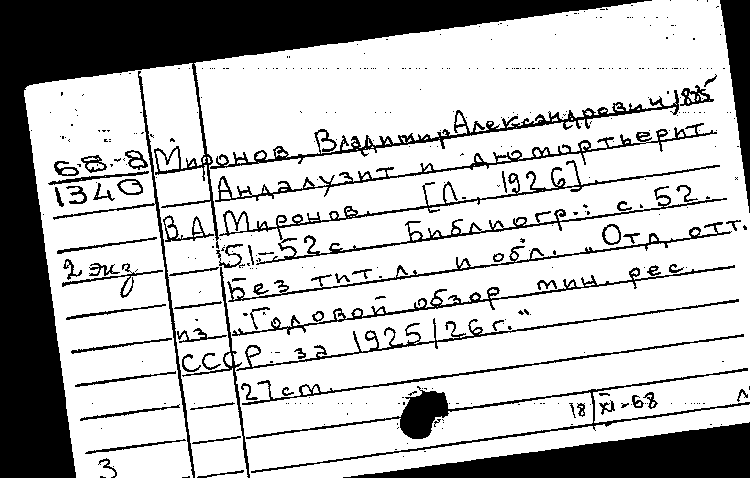 68-8 Миронов, Владимир Александрович, 1885
1340 Андалузит и дюмортьерит.
В.А. Миронов. [Л., 1926].
51-52 с. Библиогр.: с. 52.
2 экз Без тит. л. и обл. "Отд. отт.
из "Годовой обзор мин. рес.
СССР. за 1925/26 г."
27 см.
18/XI-68
3